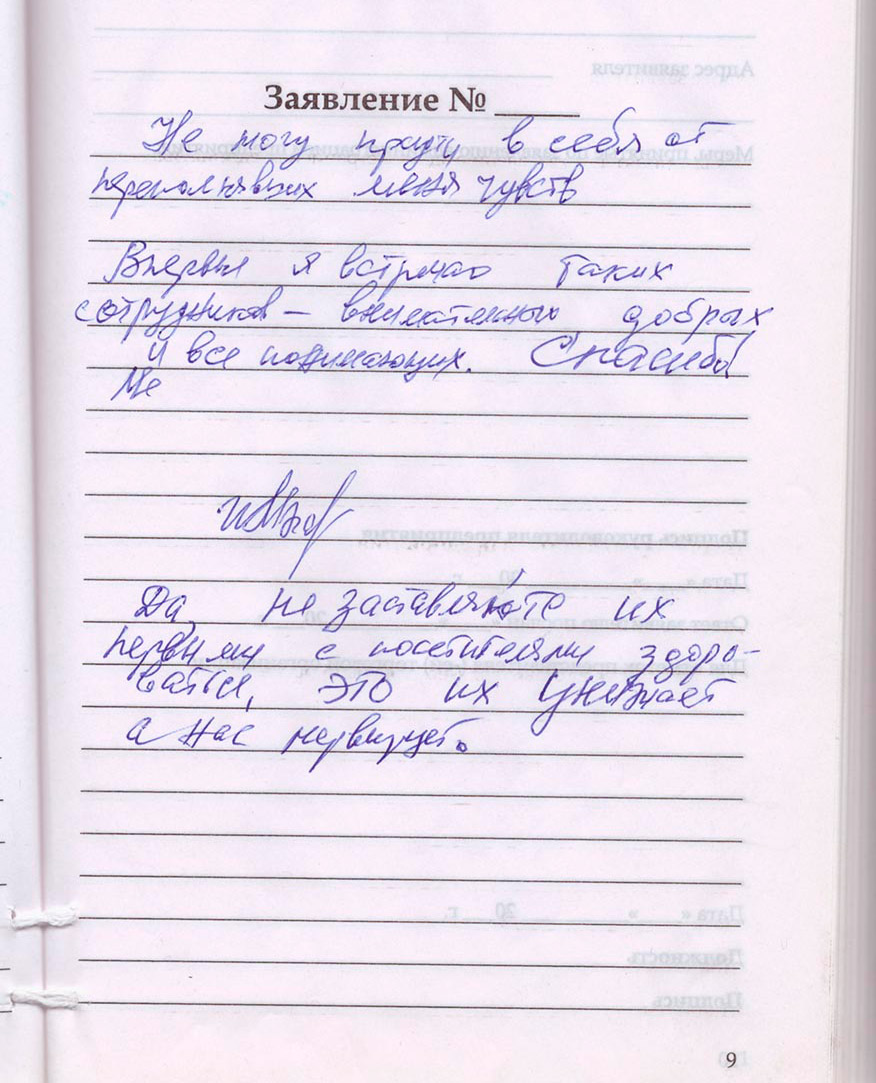 Заявление №
Не могу прийти в себя от
переполнявших меня чувств
Впервые я встречаю таких
сотрудников – внимательных добрых
и все понимающих. Спасибо!
Да, не заставляйте их
первыми с посетителями здоро-
ваться, это их унижает
а нас нервирует.
9